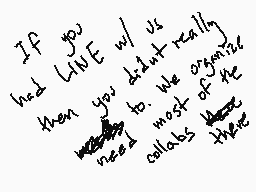 If you
had LINE w/ us
then you didnt really
need to. We organize
most of the
collabs there